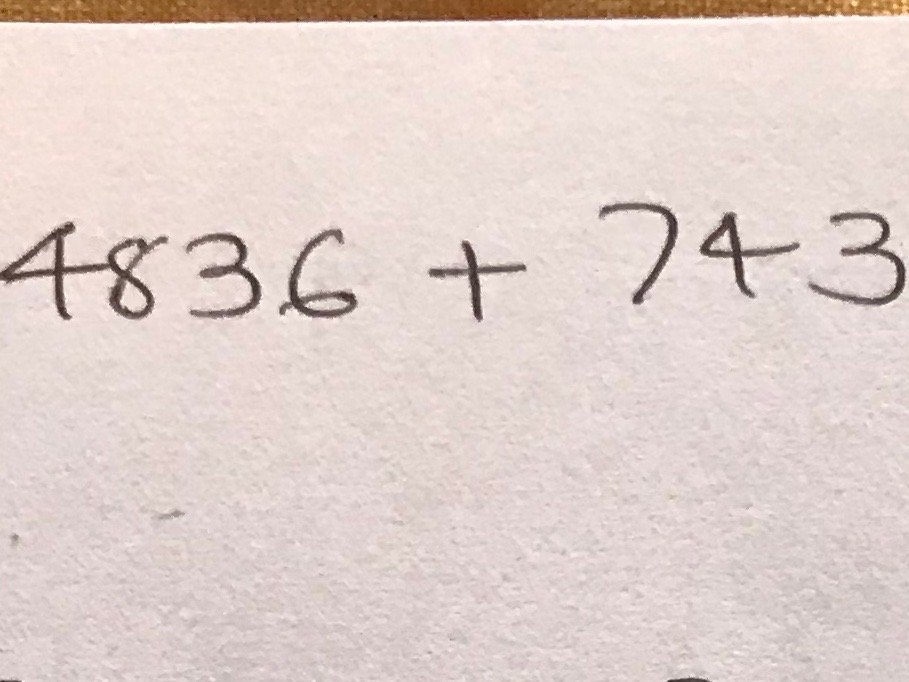 4836 + 743